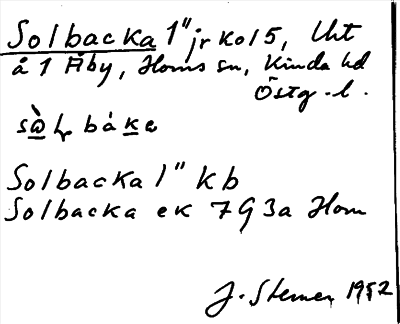 Solbacka 1" jr kol 5, Uht
å 1 Åby, Horns sn, Kinda hd
Östg. l.
Solbacka 1" kb
Solbacka ek 7G3a Horn
J. Sterner 1952